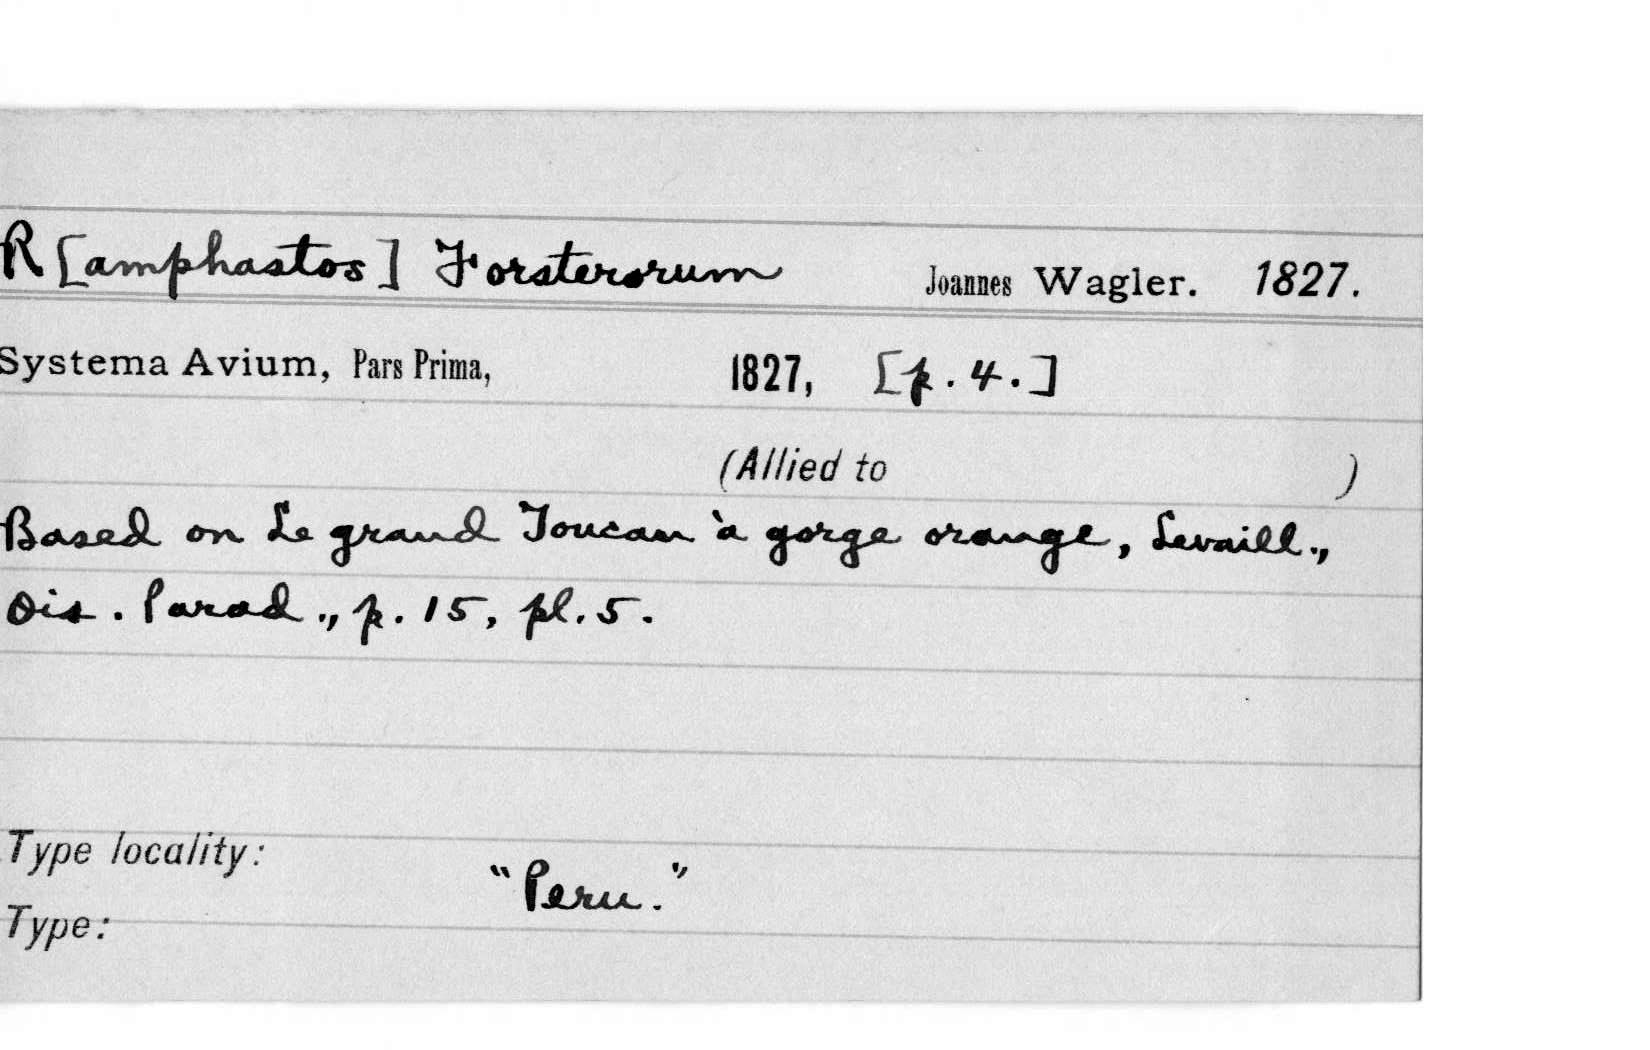 R[amphastos] Forsterorum Joannes Wagler. 1827.
Systema Avium, Pars Prima, 1827, [p. 4.]
(Allied to )
Based on Le grand Toucan à gorge orange, Levaill.,
Ois. Parad., p. 15, pl. 5.
Type locality:
"Peru."
Type: